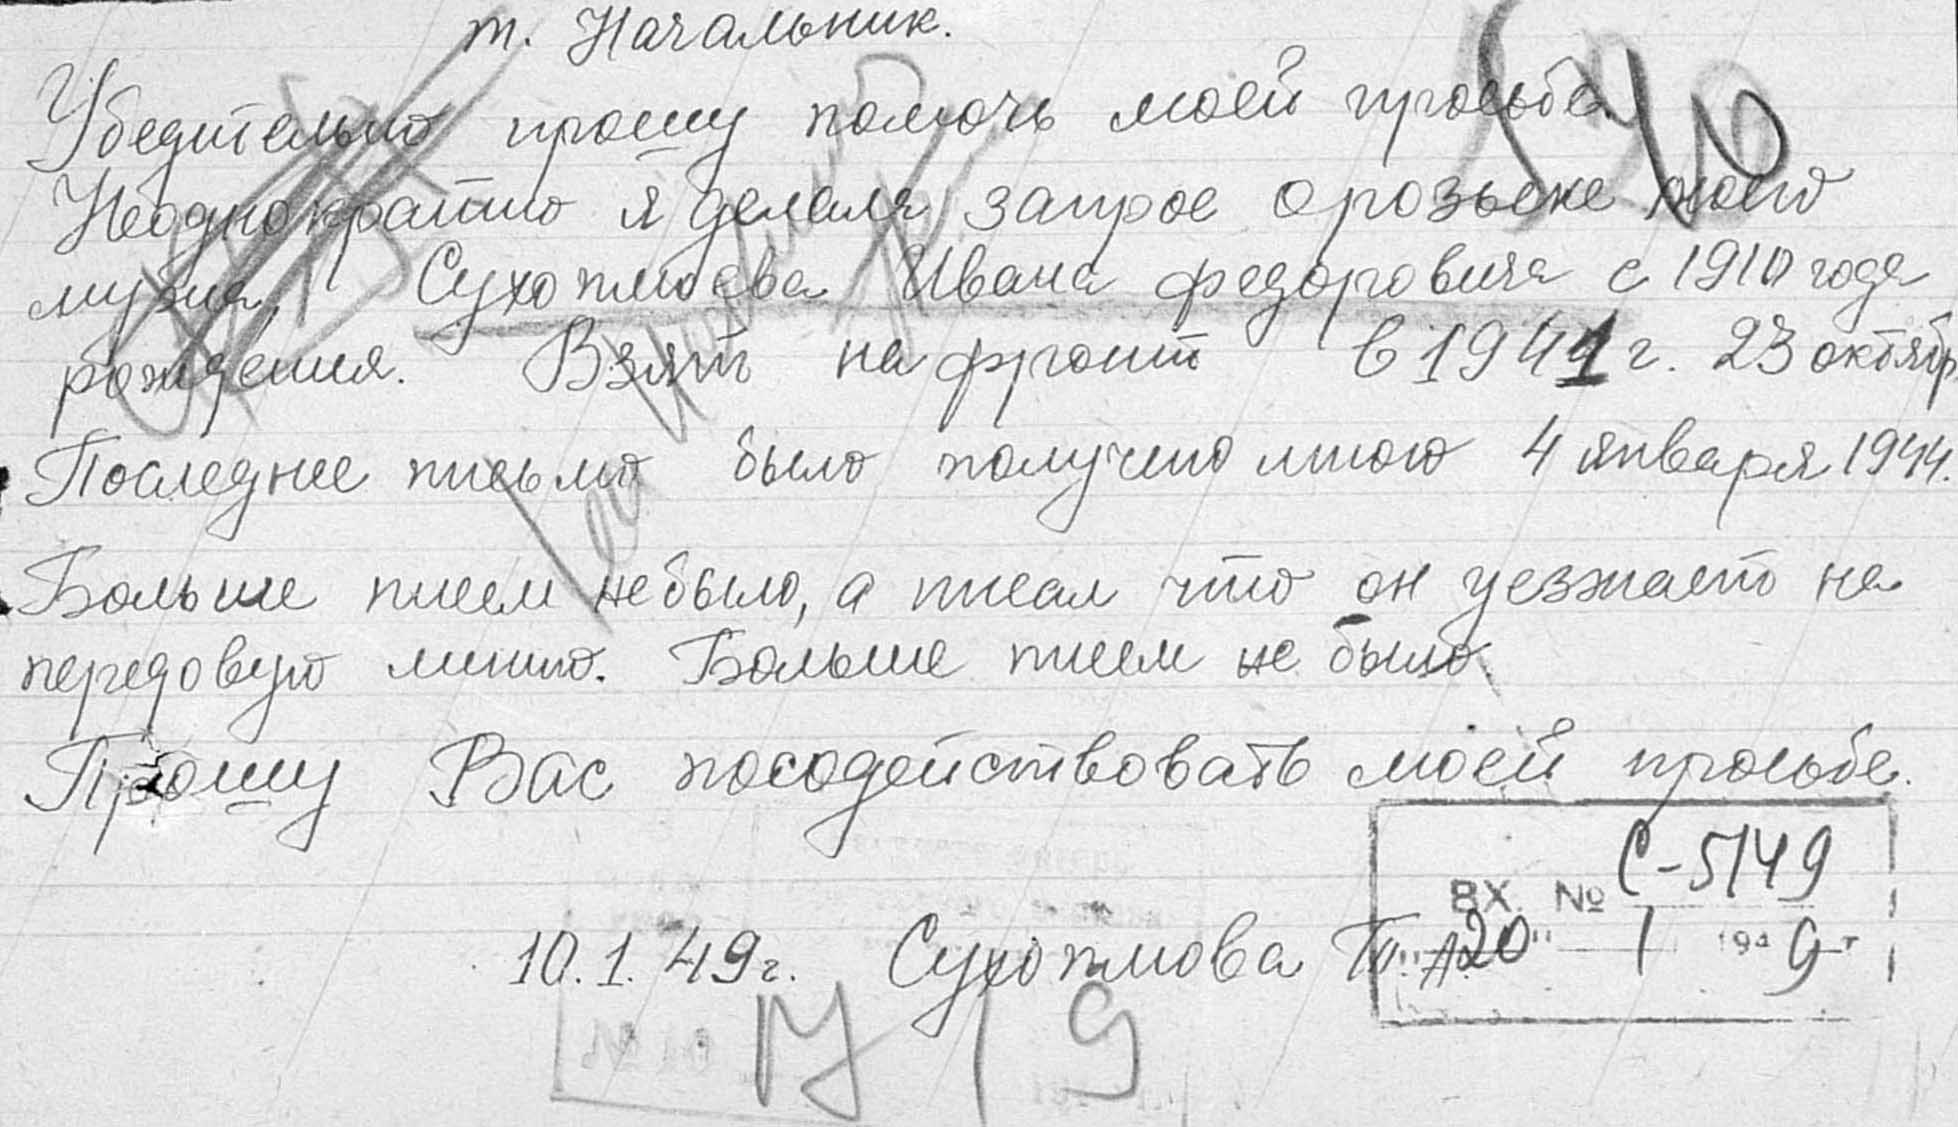 т. Начальник.
Убедительно прошу помочь моей просьбе.
Неоднократно я делала запрос орозыске моего
мужа, Сухоплюева Ивана федоровича с 1910 года
рождения. Взят на фронт в 1941 г. 23 октябр
Последнее письмо было получено мною 4 января 1944.
Больше писем небыло, а писал что он уезжает на
передовую линию. Больше писем не было.
Прошу Вас посодействовать моей просьбе.
ВХ. № С-5149
"20" 1 1949 г
10.1.49г. Сухоплюева Т. А.